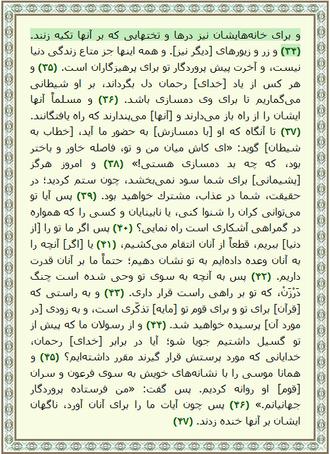 و برای خانه‌هایشان نیز درها و تختهایی که بر آنها تکیه زنند.
(۳۴) و زر و زیورهای [دیگر نیز]. و همه اینها جز متاع زندگی دنیا
نیست، و آخرت پیش پروردگار تو برای پرهیزگاران است. (۳۵) و
هر کس از یاد [خدای] رحمان دل بگرداند، بر او شیطانی
می‌گماریم تا برای وی دمسازی باشد. (۳۶) و مسلماً آنها
ایشان را از راه باز می‌دارند و [آنها] می‌پندارند که راه یافتگانند.
(۳۷) تا آنگاه که او [با دمسازش] به حضور ما آید، [خطاب به
شیطان] گوید: «ای کاش میان من و تو، فاصله خاور و باختر
بود، که چه بد دمسازی هستی!» (۳۸) و امروز هرگز
[پشیمانی] برای شما سود نمی‌بخشد، چون ستم کردید؛ در
حقیقت، شما در عذاب، مشترک خواهید بود. (۳۹) پس آیا تو
می‌توانی کران را شنوا کنی، یا نابینایان و کسی را که همواره
در گمراهی آشکاری است راه نمایی؟ (۴۰) پس اگر ما تو را [از
دنیا] ببریم، قطعاً از آنان انتقام می‌کشیم، (۴۱) یا [اگر] آنچه را
به آنان وعده داده‌ایم به تو نشان دهیم؛ حتماً ما بر آنان قدرت
داریم. (۴۲) پس به آنچه به سوی تو وحی شده است چنگ
دَرْزَنْ، که تو بر راهی راست قرار داری. (۴۳) و به راستی که
[قرآن] برای تو و برای قوم تو [مایه] تذکّری است، و به زودی [در
مورد آن] پرسیده خواهید شد. (۴۴) و از رسولان ما که پیش از
تو گسیل داشتیم جویا شو؛ آیا در برابر [خدای] رحمان،
خدایانی که مورد پرستش قرار گیرند مقرر داشته‌ایم؟ (۴۵) و
همانا موسی را با نشانه‌های خویش به سوی فرعون و سران
[قوم] او روانه کردیم. پس گفت: «من فرستاده پروردگار
جهانیانم.» (۴۶) پس چون آیات ما را برای آنان آورد، ناگهان
ایشان بر آنها خنده زدند. (۴۷)